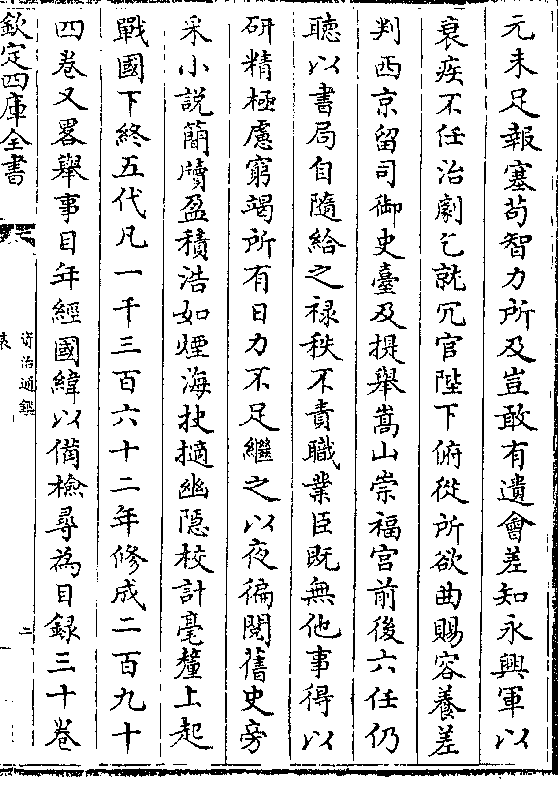 元未足報塞苟智力所及豈敢有遺會差知永興軍以
衰疾不任治劇乞就冗官陛下俯從所欲曲賜容養差
判西京留司御史臺及提舉嵩山崇福宮前後六任仍
聽以書局自隨給之祿秩不責職業臣既無他事得以
研精極慮窮竭所有日力不足繼之以夜徧閱舊史旁
采小說簡牘盈積浩如煙海抉擿幽隱校計毫釐上起
戰國下終五代凡一千三百六十二年修成二百九十
四卷又畧舉事目年經國緯以備檢尋為目錄三十卷
欽定四庫全書
資治通鑑
表
二